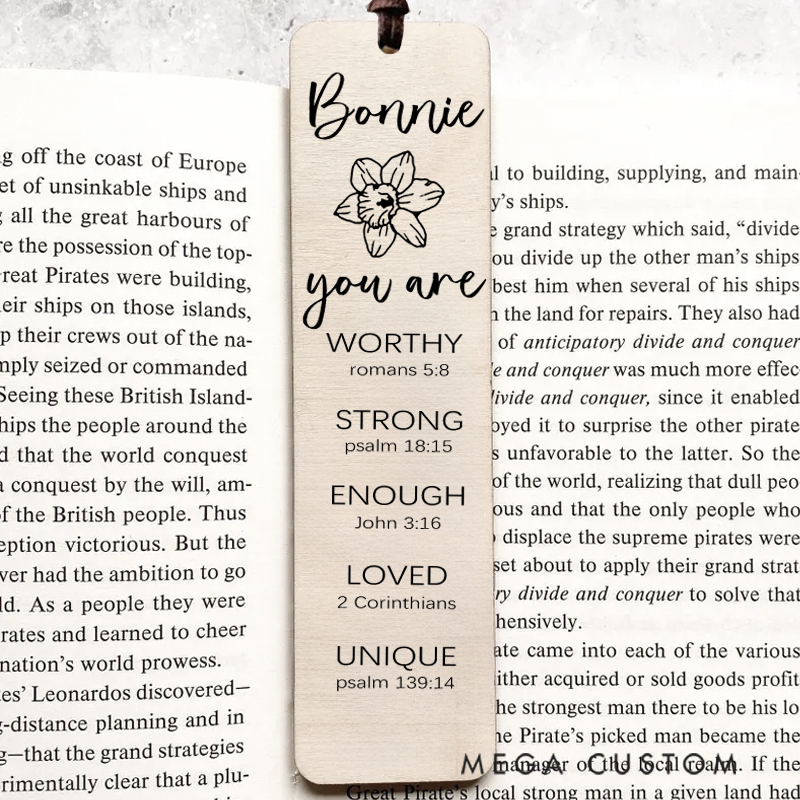 Bonnie
you are
WORTHY
romans 5:8
STRONG
psalm 18:15
ENOUGH
John 3:16
LOVED
2 Corinthians
UNIQUE
psalm 139:14
g off the coast of Europe
et of unsinkable ships and
all the great harbours of
re the possession of the top-
reat Pirates were building,
eir ships on those islands,
p their crews out of the na-
mply seized or commanded
Seeing these British Island-
hips the people around the
d that the world conquest
a conquest by the will, am-
of the British people. Thus
eption victorious. But the
ver had the ambition to go
ld. As a people they were
rates and learned to cheer
nation's world prowess.
es' Leonardos discovered—
g-distance planning and in
g—that the grand strategies
rimentally clear that a plu-
l to building, supplying, and main-
y's ships.
e grand strategy which said, “divide
ou divide up the other man's ships
best him when several of his ships
n the land for repairs. They also had
of anticipatory divide and conquer
e and conquer was much more effec-
divide and conquer, since it enabled
oyed it to surprise the other pirate
s unfavorable to the latter. So the
of the world, realizing that dull peo
ous and that the only people who
displace the supreme pirates were
set about to apply their grand strat
ry divide and conquer to solve that
hensively.
ate came into each of the various
ither acquired or sold goods profit
he strongest man there to be his lo
he Pirate's picked man became the
manager of the local realm. If the
Great Pirate's local strong man in a given land had
MEGA CUSTOM